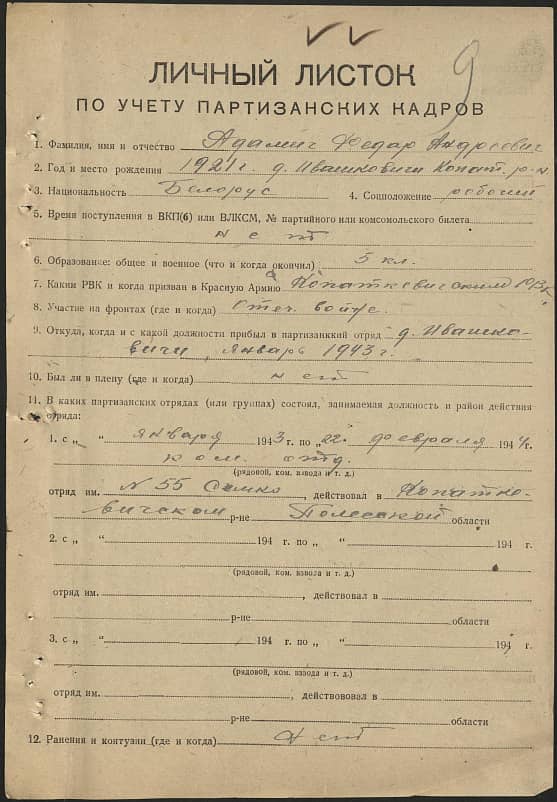 9
ЛИЧНЫЙ ЛИСТОК
ПО УЧЕТУ ПАРТИЗАНСКИХ КАДРОВ
1. Фамилия, имя и отчество Адамич Федар Андреевич
2. Год и место рождения 1921 г. д. Ивашковичи Копат. р-н
3. Национальность Белорус 4. Соцположение рабочий
5. Время поступления в ВКП(б) или ВЛКСМ, № партийного или комсомольского билета
нет
6. Образование: общее и военное (что и когда окончил) 5 кл.
7. Каким РВК и когда призван в Красную Армию Копаткевичским
8. Участие на фронтах (где и когда) Отеч. войне.
9. Откуда, когда и с какой должности прибыл в партизанский отряд д. Ивашко-
вичи, январь 1943 г.
10. Был ли в плену (где и когда) нет
11. В каких партизанских отрядах (или группах) состоял, занимаемая должность и район действия
отряда:
1. с „ “ января 1943 г. по „22“ февраля 1944 г.
ком. отд.
(рядовой, ком. взвода и т. д.)
отряд им. N 55 Сашко, действовал в Копатке-
вичском р-не Полесской области
2. с „ “ 194 г. по „ “ 194 г.
(рядовой, ком. взвода и т. д.)
отряд им. , действовал в
р-не области
3. с „ “ 194 г. по „ “ 194 г.
(рядовой, ком. взвода и т. д.)
отряд им. , действововал в
р-не области
12. Ранения и контузии (где и когда) нет